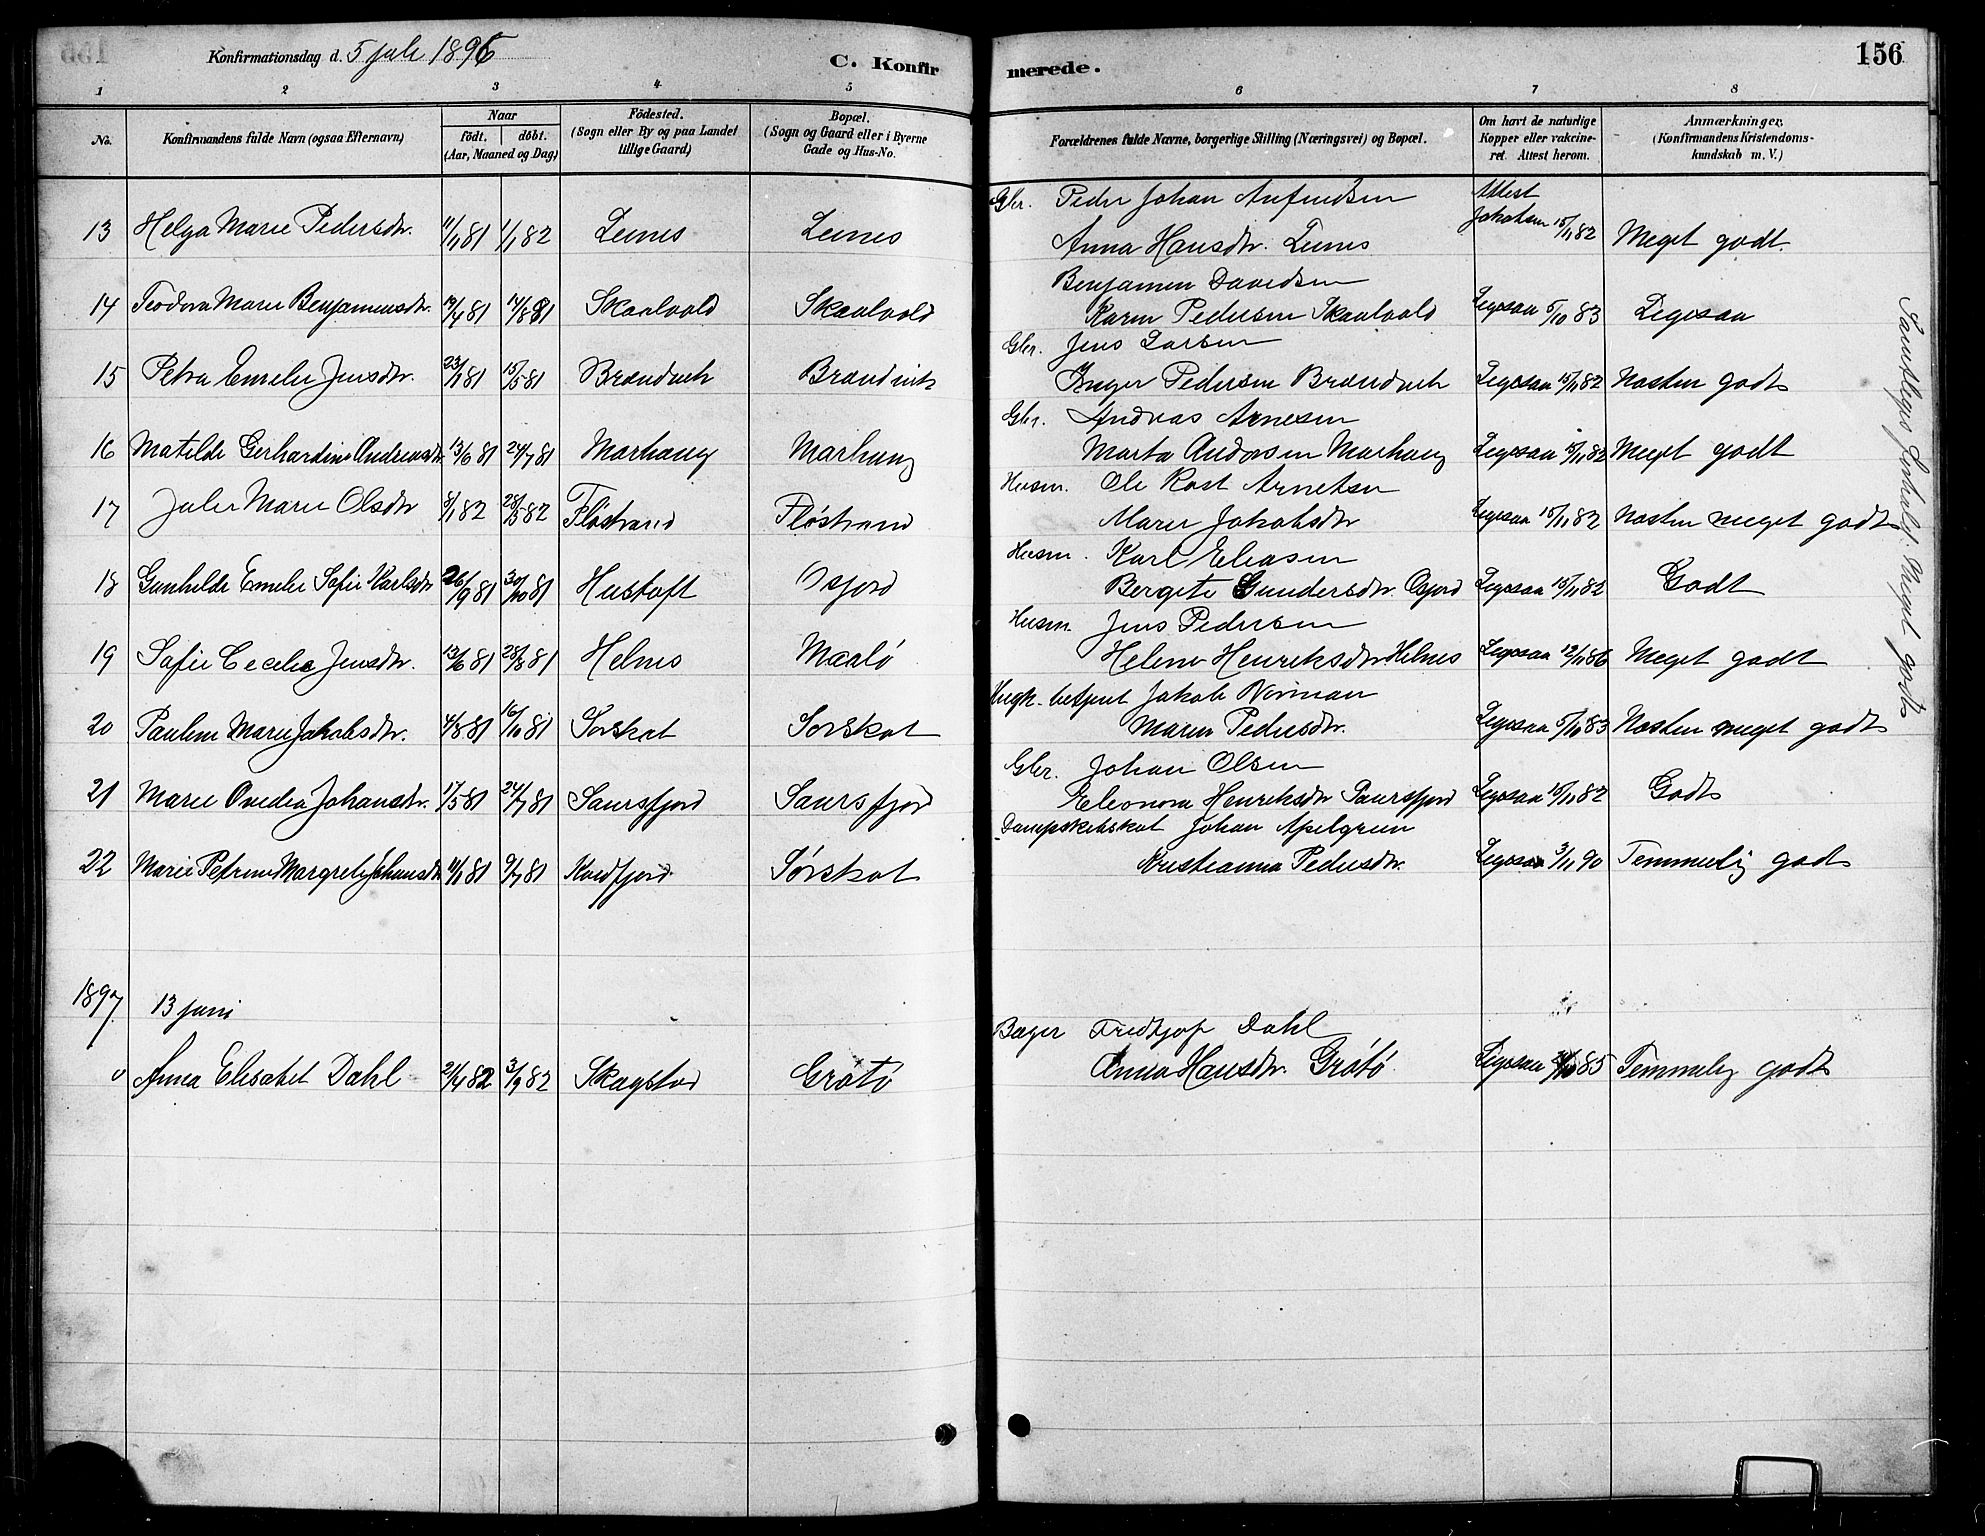 Konfirmationsdag d. 5 juli 1896 C. Konfirmerede. 156
1 2 3 4 5 6 7 8
No. Konfirmandens fulde Navn (ogsaa Efternavn) Naar födt. döbt. (Aar, Maaned og Dag) Födested. (Sogn eller By og paa Landet tillige Gaard) Bopæl. (Sogn og Gaard eller i Byerne Gade og Hus-No. Forældrenes fulde Navne, borgerlige Stilling (Næringsvei) og Bopæl. Om havt de naturlige Kopper eller vakcineret. Attest herom. Anmærkninger, (Konfirmandens Kristendomskundskab m. V.)
Gbr. Peder Johan Arfindsen Attest
13 Helga Marie Pedersdtr. 11/11 81 1/1 82 Leines Leines Anna Hansdtr. Leines Jakobsen 15/11 82 Meget godt.
Benjamin Davidsen
14 Teodora Marie Benjaminsdtr. 19/4 81 14/8 81 Skaalvold Skaalvold Karen Pedersen Skaalvold Ligesaa 5/10 83 Ligesaa
Gbr. Jens Larsen
15 Petra Emelie Jensdtr. 23/1 81 15/5 81 Brandvik Brandvik Inger Pedersen Brandvik Ligesaa 15/11 82 Næsten godt
Gbr. Andreas Arnesen
16 Matilde Gerhardine Andreasdtr. 13/6 81 24/7 81 Marhaug Marhaug Marta Andersen Marhaug Ligesaa 15/11 82 Meget godt
Husm. Ole Rost Arntsen
17 Julie Marie Olsdtr 8/1 82 28/5 82 Fløstrand Fløstrand Maren Jakobsdtr Ligesaa 15/11 82 Næsten meget godt
Husm. Karl Eliasen
18 Gunhilde Emelie Sofie Karlsdtr 26/9 81 30/10 81 Hustoft Osfjord Bergete Gundersdtr. Osfjord Ligesaa 15/11 82 Godt
Husm. Jens Pedersen
19 Sofie Cecelie Jensdtr. 13/6 81 28/8 81 Helnes Maalø Helene Henriksdtr Helnes Ligesaa 12/11 86 Meget godt
Jakob Norman
20 Pauline Marie Jakobsdtr. 4/8 81 16/10 81 Sørskot Sørskot Maren Pedersdtr. Ligesaa 5/10 83 Næsten meget godt
Gbr. Johan Olsen
21 Marie Ovedia Johansdtr. 17/5 81 24/7 81 Saursfjord Saursfjord Eleonora Henriksdtr Saursfjord Ligesaa 15/11 82 Godt
Johan Apelgren
22 Marie Petrine Margrete Johansdtr 11/1 81 9/7 81 Kaldfjord Sørskot Kristianna Pedersdtr. Ligesaa 3/11 90 Temmelig godt
1897 13 juni
Bager Fredhjof Dahl
Anna Elisabet Dahl 21/4 82 3/9 82 Skagstad Grøtø Anna Hansdtr. Grøtø Ligesaa 85 Temmelig godt
Meget godt